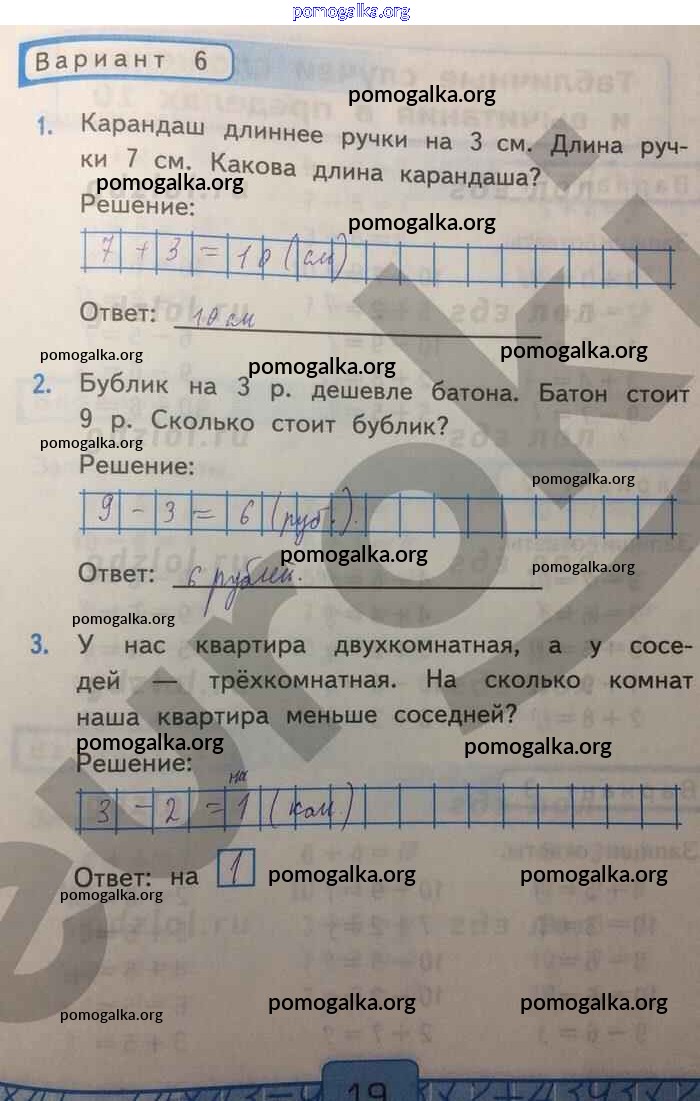 pomogalka.org
Вариант 6
pomogalka.org
1. Карандаш длиннее ручки на 3 см. Длина руч-
ки 7 см. Какова длина карандаша?
pomogalka.org
Решение:
pomogalka.org
7 + 3 = 10 (см)
Ответ: 10 см
pomogalka.org pomogalka.org pomogalka.org
2. Бублик на 3 р. дешевле батона. Батон стоит
9 р. Сколько стоит бублик?
pomogalka.org
Решение:
pomogalka.org
9 - 3 = 6 (руб.).
pomogalka.org
Ответ: 6 рублей.
pomogalka.org
pomogalka.org
3. У нас квартира двухкомнатная, а у сосе-
дей — трёхкомнатная. На сколько комнат
наша квартира меньше соседней?
pomogalka.org pomogalka.org
Решение:
на
3 - 2 = 1 (ком.)
Ответ: на 1
pomogalka.org pomogalka.org pomogalka.org
pomogalka.org pomogalka.org pomogalka.org
19
euroki